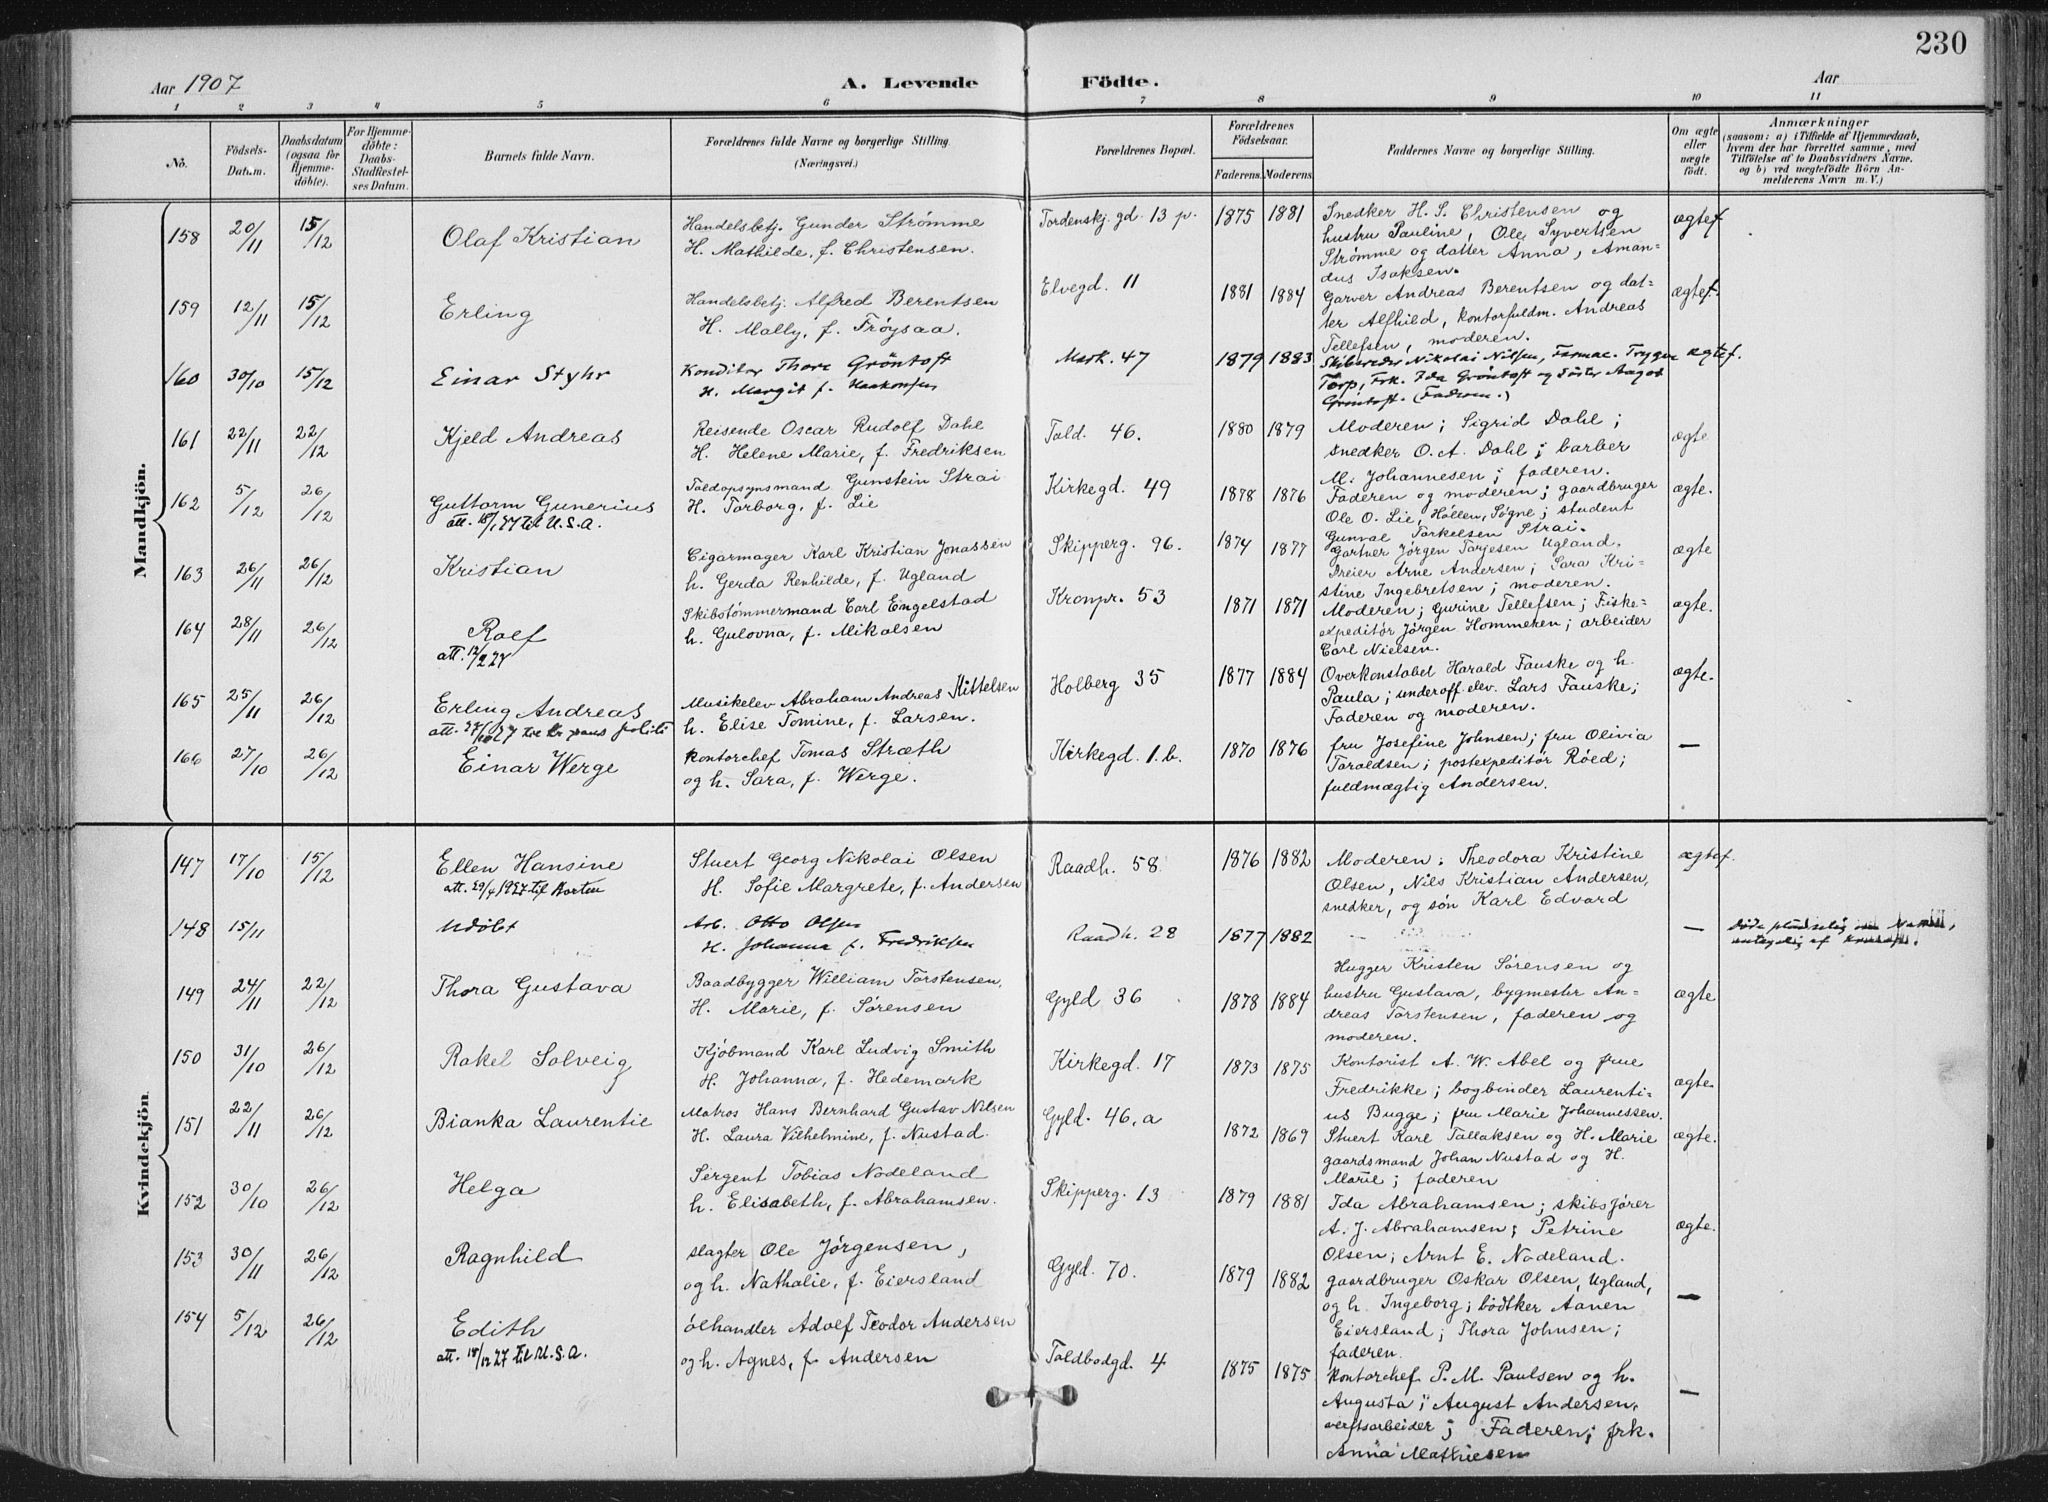 230
Aar 1907
A. Levende Födte.
Aar
1 2 3 4 5 6 7 8 9 10 11
No.
Födsels-
Datum.
Daabsdatum
(ogsaa for
Hjemme-
döbte).
For Hjemme-
döbte:
Daabs-
Stadfæstel-
ses Datum.
Barnets fulde Navn.
Forældrenes fulde Navne og borgerlige Stilling
(Næringsvei.)
Forældrenes Bopæl.
Forældrenes
Födselsaar.
Faderens. Moderens.
Faddernes Navne og borgerlige Stilling.
Om ægte
eller
uægte
födt.
Anmærkninger
(saasom: a) i Tilfælde af Hjemmedaab,
hvem der har forrettet samme, med
Tilföielse af to Daabsvidners Navne.
og b) ved uægtefödte Börn An-
melderens Navn m. V.)
Mandkjön.
158 20/11 15/12 Olaf Kristian
Handelsbetj. Gunder Strømme
H. Mathilde, f. Christensen.
Tordenskj. gd. 13 p. 1875 1881
Snedker H. S. Christensen og
hustru Pauline, Ole Syvertsen
Strømme og datter Anna, Aman-
dus Isaksen.
ægtef.
159 12/11 15/12 Erling
Handelsbetj. Alfred Berentsen
H. Mally, f. Frøysaa.
Elvegd. 11 1881 1884
Garver Andreas Berentsen og dat-
ter Alfhild, kontorfuldm. Andreas
Tellefsen, moderen.
ægtef.
160 30/10 15/12 Einar Styhr
Konditor Thore Gröntoft
H. Margit f. Haakonsen
Mark. 47 1879 1883
Skibsreder Nikolai Nilsen, Farmac. Trygve
Torp, Frk. Ida Gröntoft og Söster Aagot
Gröntoft. (Fadrene.)
ægtef.
161 22/11 22/12 Kjeld Andreas
Reisende Oscar Rudolf Dahl
H. Helene Marie, f. Fredriksen
Told. 46. 1880 1879
Moderen; Sigrid Dahl;
snedker O. A. Dahl; barber
M. Johannesen; faderen.
ægte
162 5/12 26/12 Guttorm Gunerius
att. 18/1 27 til U.S.A.
Toldopsynsmand Gunstein Strai
H. Torborg, f. Lie
Kirkegd. 49 1878 1876
Faderen og moderen; gaardbruger
Ole O. Lie, Höllen, Søgne; student
Gunval Torkelsen Strai.
ægte.
163 26/11 26/12 Kristian
Cigarmager Karl Kristian Jonassen
h. Gerda Renhilde, f. Ugland
Skipperg. 96. 1874 1877
Gartner Jörgen Tarjesen Ugland.
Dreier Arne Andersen; Sara Kri-
stine Ingebretsen; moderen.
ægte
164 28/11 26/12 Rolf
att. 12/2 27
Skibstömmermand Carl Engelstad
h. Gulovna, f. Mikalsen
Kronpr. 53 1871 1871
Moderen; Gurine Tellefsen; Fiske-
expeditör Jörgen Hommeren; arbeider
Carl Nielsen.
ægte.
165 25/11 26/12 Erling Andreas
att. 27/10 27
Musikelev Abraham Andreas Kittelsen
h. Elise Tomine, f. Larsen.
Holberg 35 1877 1884
Overkonstabel Harald Fauske og h.
Paula; underoff. elev. Lars Fauske;
Faderen og moderen.
ægte.
166 27/10 26/12 Einar Werge
Kontorchef Tomas Stræth
og h. Sara, f. Werge.
Kirkegd. 1. b. 1870 1876
fru Josefine Johnsen; fru Olivia
Taraldsen; postexpeditör Röed;
fuldmægtig Andersen.
—
Kvindekjön.
147 17/10 15/12 Ellen Hansine
att. 29/4 1927 til Horten
Stuert Georg Nikolai Olsen
H. Sofie Margrete, f. Andersen
Raadh. 58 1876 1882
Moderen. Theodora Kristine
Olsen, Nils Kristian Andersen,
snedker, og sön Karl Edvard
ægtef.
148 15/11 Udøbt
Arb. Otto Olsen
H. Johanna f. Fredriksen
Raadh. 28 1877 1882
—
døde pludselig
antagelig af
149 24/11 22/12 Thora Gustava
Baadbygger William Torstensen,
H. Marie, f. Sørensen
Gyld 36 1878 1884
Hugger Kristen Sørensen og
hustru Gustava, bygmester An-
dreas Torstensen, faderen og
moderen.
ægte
150 31/10 26/12 Rakel Solveig
Kjöbmand Karl Ludvig Smith
H. Johanna, f. Hedemark
Kirkegd. 17 1873 1875
Kontorist A. W. Abel og frue
Fredrikke; bogbinder Laurenti-
us Bugge; fru Marie Johannessen.
ægte.
151 22/11 26/12 Bianka Laurentie
Matros Hans Bernhard Gustav Nilsen
H. Laura Vilhelmine, f. Nustad.
Gyld. 46, a 1872 1869
Stuert Karl Tallaksen og H. Marie
gaardsmand Johan Nustad og H.
Marie; faderen
ægte.
152 30/10 26/12 Helga
Sergent Tobias Nodeland
h. Elisabeth, f. Abrahamsen.
Skipperg. 13 1879 1881
Ida Abrahamsen; skibsförer
A. J. Abrahamsen; Petrine
Olsen; Arnt E. Nodeland.
ægte.
153 30/11 26/12 Ragnhild
slagter Ole Jörgensen,
og h. Nathalie, f. Eiersland
Gyld. 70. 1879 1882
gaardbruger Oskar Olsen, Ugland,
og h. Ingeborg; bödtker Aanen
Eiersland; Thora Johnsen;
faderen.
—
154 5/12 26/12 Edith
att. 18/12 27 til U.S.A.
ölhandler Adolf Teodor Andersen
og h. Agnes, f. Andersen
Toldbodgd. 4 1875 1875
kontorchef P. M. Paulsen og h.
Augusta; August Andersen,
verftsarbeider; Faderen; frk.
Anna Mathiesen
—